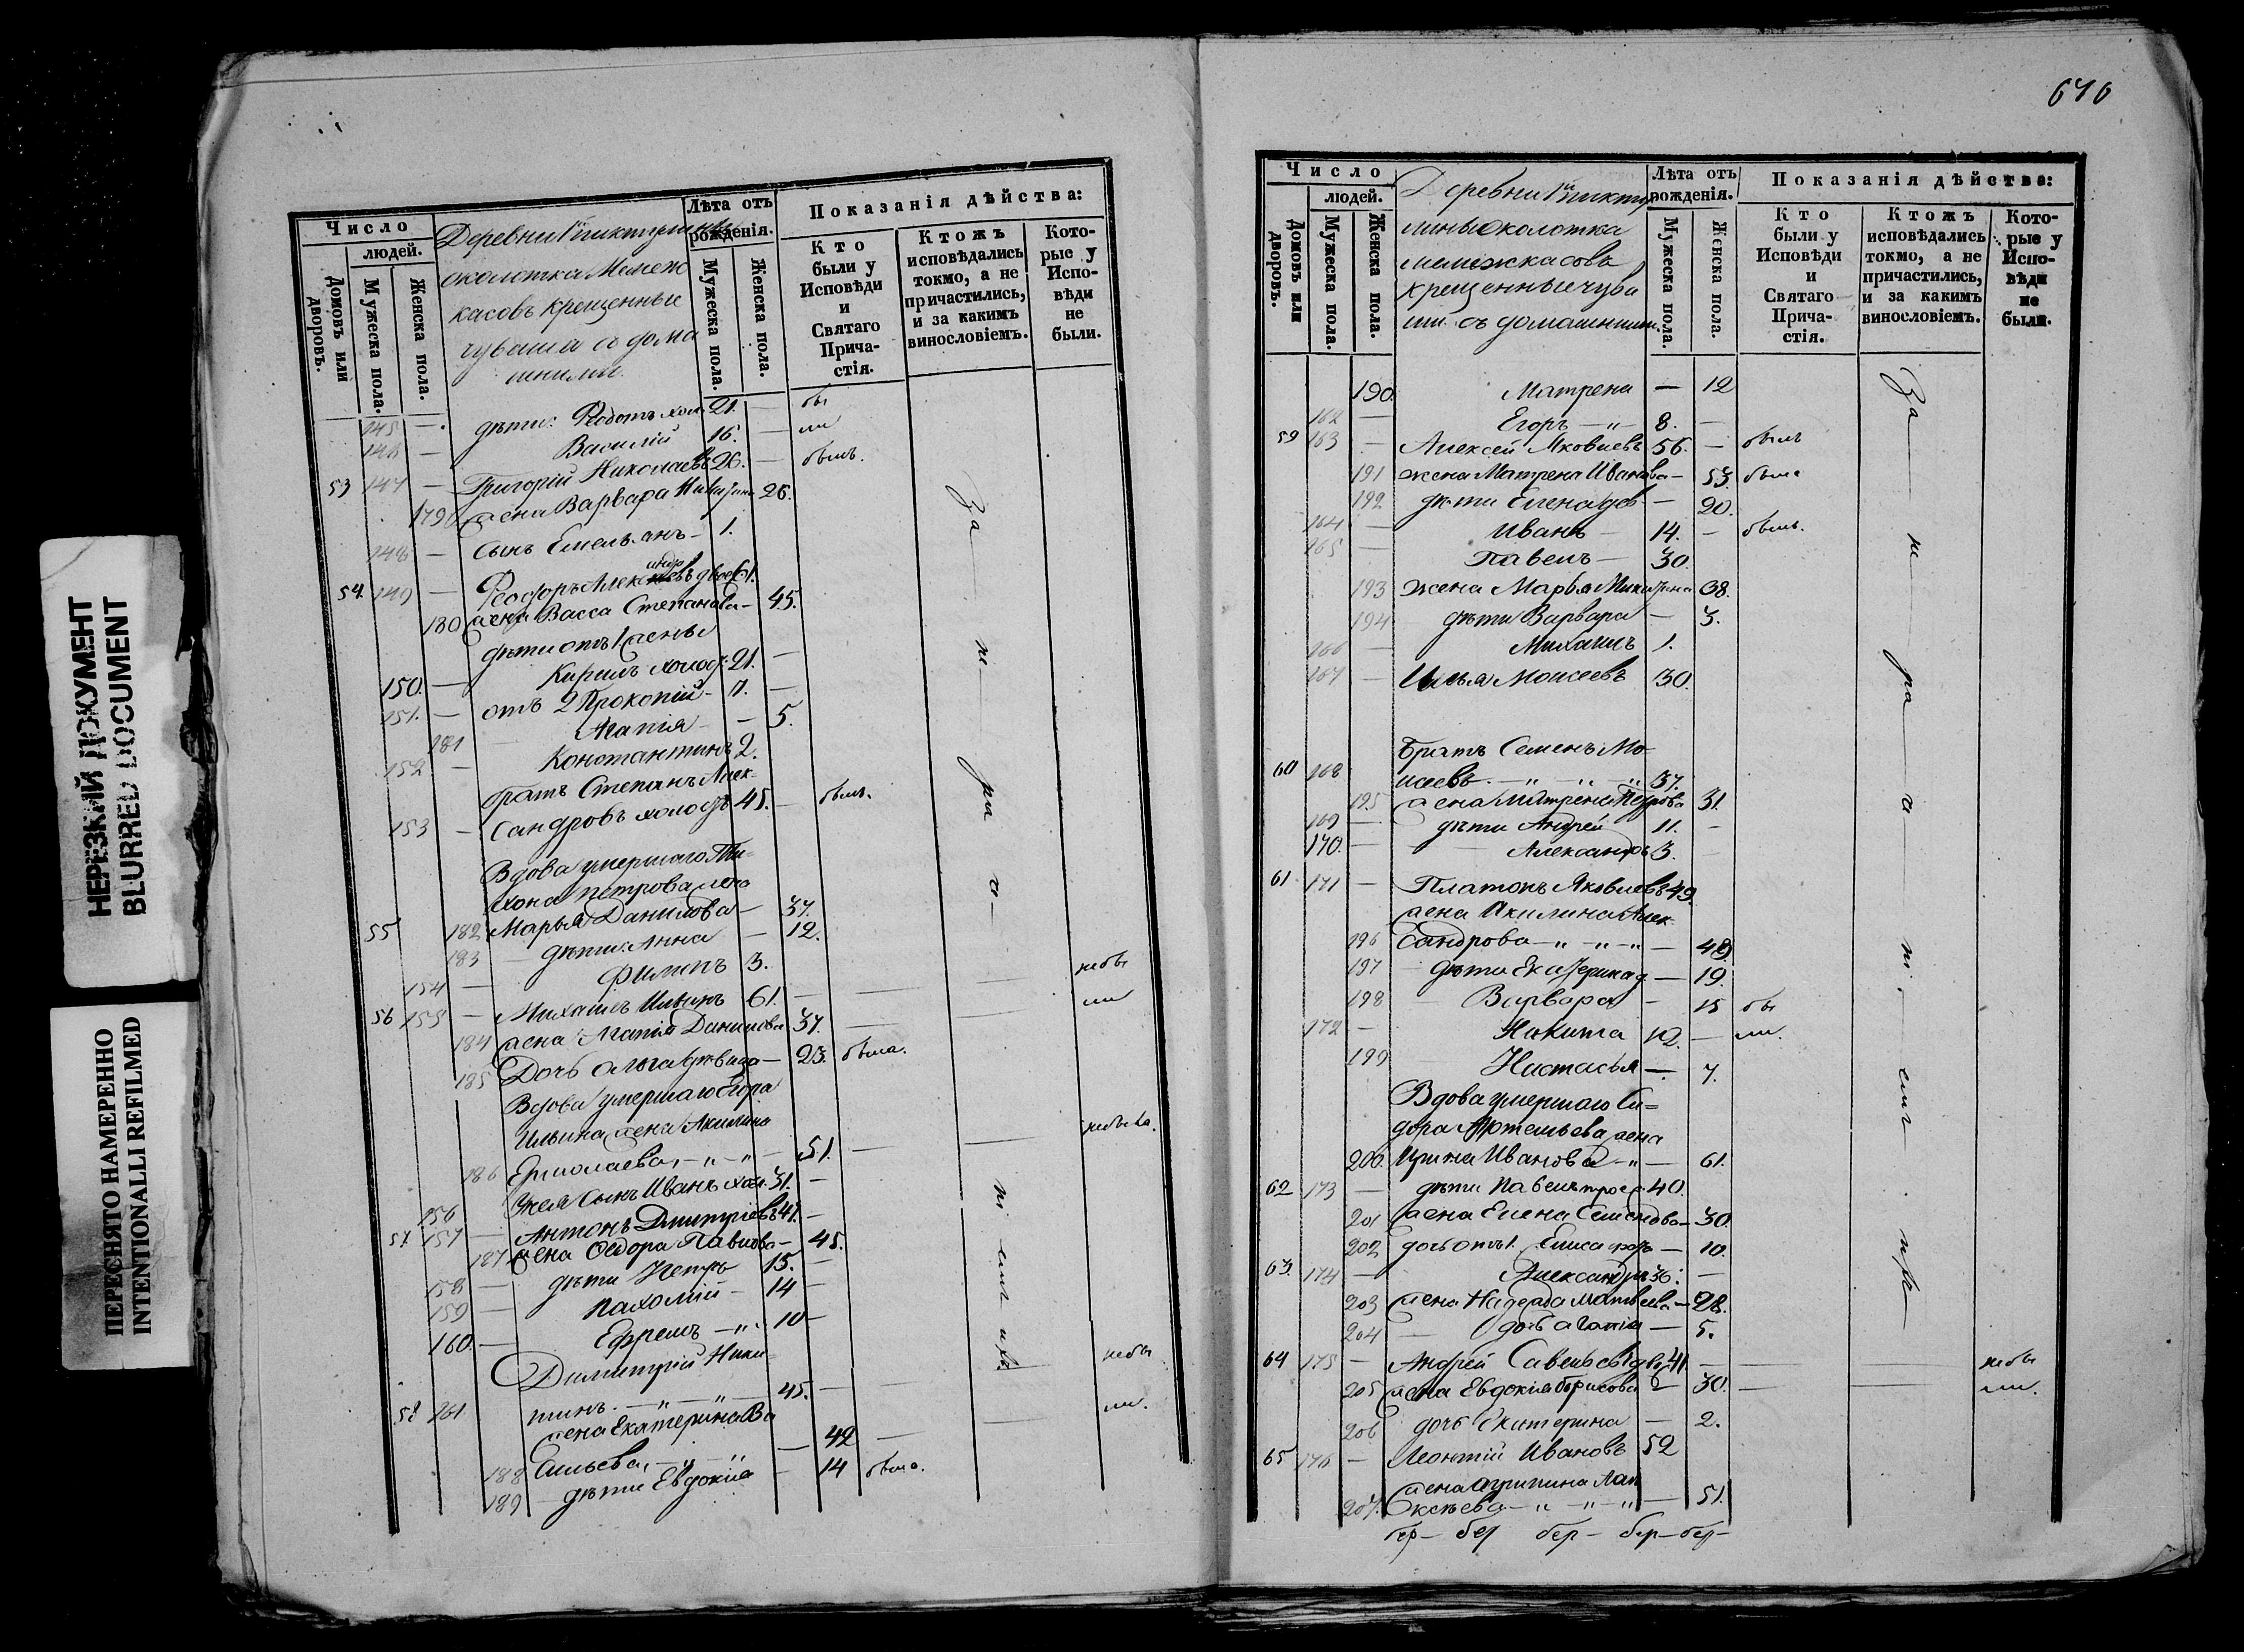 НЕРЕЗКИЙ ДОКУМЕНТ
BLURRED DOCUMENT
ПЕРЕСНЯТО НАМЕРЕННО
INTENTIONALLI REFILMED
Число
людей.
Домовъ или дворовъ.
Мужеска пола.
Женска пола.
Деревни
околотка
касовъ крещенные
чуваша съ дома
шними.
Лѣта отъ рожденія.
Мужеска пола.
Женска пола.
Показанія дѣйства:
Кто были у Исповѣди и Святаго Причастія.
Ктожъ исповѣдались токмо, а не причастились, и за какимъ винословіемъ.
Которые у Исповѣди не были.
145 — дѣти: Ѳедотъ хол. 21. — бы
146 — Василій 16. — ли
53 147 — Григорій Николаевъ 26. — былъ.
179 жена Варвара 26.
148 — сынъ Емельянъ — 1.
54 149 — Ѳеодоръ 61.
180 жена Васса Степанова — 45.
дѣти отъ 1 жены
150. — Кирилъ холос. 21. —
151. — отъ 2 Прокопій — 7. —
181 Агапія — 5.
152 — Константинъ 2.
братъ Степанъ Алек-
153 — сандровъ холос 45. — былъ.
Вдова умершаго Ти-
хона Петрова жена
55 182 Марья Данилова — 37.
183 дѣти: Анна — 12.
154 — Филипъ 3.
56 155 — Михаилъ Ильинъ 61. — небы
184 жена Агапія Данилова 37. — ли
185 Дочь Ольга — 23. была.
Вдова умершаго Егора
Ильина жена Акилина
186 Ермолаева — „ — „ — 51. — небыла.
156 Ужея сынъ Иванъ хол. 31. —
57 157 — Антонъ Дмитріевъ 41. —
187 жена Ѳедора Павлова — 45.
158 — дѣти Петръ 15. —
159 — Пахомій — 14 —
160 — Ефремъ — „ 10 —
Димитрій Ники-
58 161 тинъ — „ — „ — 45. — небы
жена Екатерина Ва
188 сильева, — „ — „ — 42 — ли.
189 дѣти Евдокія — 14 была.
За не ра с- пі емъ
646
Число
людей.
Домовъ или дворовъ.
Мужеска пола.
Женска пола.
Деревни
лины околотка
крещенные чува
ши съ домашними.
Лѣта отъ рожденія.
Мужеска пола.
Женска пола.
Показанія дѣйства:
Кто были у Исповѣди и Святаго Причастія.
Ктожъ исповѣдались токмо, а не причастились, и за какимъ винословіемъ.
Которые у Исповѣди не были.
190. Матрена — 12
162 — Егоръ — „ — 8. —
59 163 — Алексей Яковлевъ 56. — былъ
191 жена Матрена Иванова — 53. была
192 дѣти Елена дев — 20.
164 — Иванъ — 14. — былъ.
165 — Павелъ — 30.
193 жена Марья Никитина 38.
194 дѣти Варвара — 3.
166 — Михаилъ 1.
167 — Илья Моисеевъ 30.
братъ Семенъ Мо-
60 168 исеевъ — „ — „ — „ 37.
195 жена Матрена Петрова 31.
169 — дѣти Андрей 11. —
170. — Александръ 3. —
61 171 — Платонъ Яковлевъ 49.
жена Акилина Алек-
196 сандрова — „ — „ — „ — 49.
197 дѣти Екатерина д — 19.
198 Варвара — 15 бы
172 — Никита 12. — ли.
199 Настасья — 7.
Вдова умершаго Си=
дора Артемьева жена
200. Ирина Иванова — „ — 61.
62 173 — дѣти Павелъ 40.
201 жена Елена Семенова — 30.
202 дочь отъ 1. — 10.
63. 174 — Александръ 36. —
203 жена Надежда Матвеева — 28.
204 дочь Агапія — 5.
64 175 — Андрей Савельевъ 41. — небы
205 жена Евдокія Борисова 2 — 30. — ли.
206 дочь Екатерина — 2.
65 176 — Леонтій Ивановъ 52
жена Агрипина
207. ксѣева — „ — „ — „ — 51.